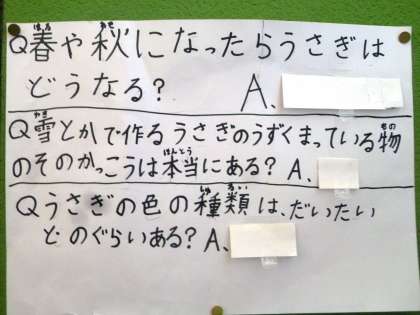 Q春や秋になったらうさぎは
どうなる? A、
Q雪とかで作るうさぎのうずくまっている物
のそのかっこうは本当にある? A、
Qうさぎの色の種類は、だいたい
どのぐらいある? A、